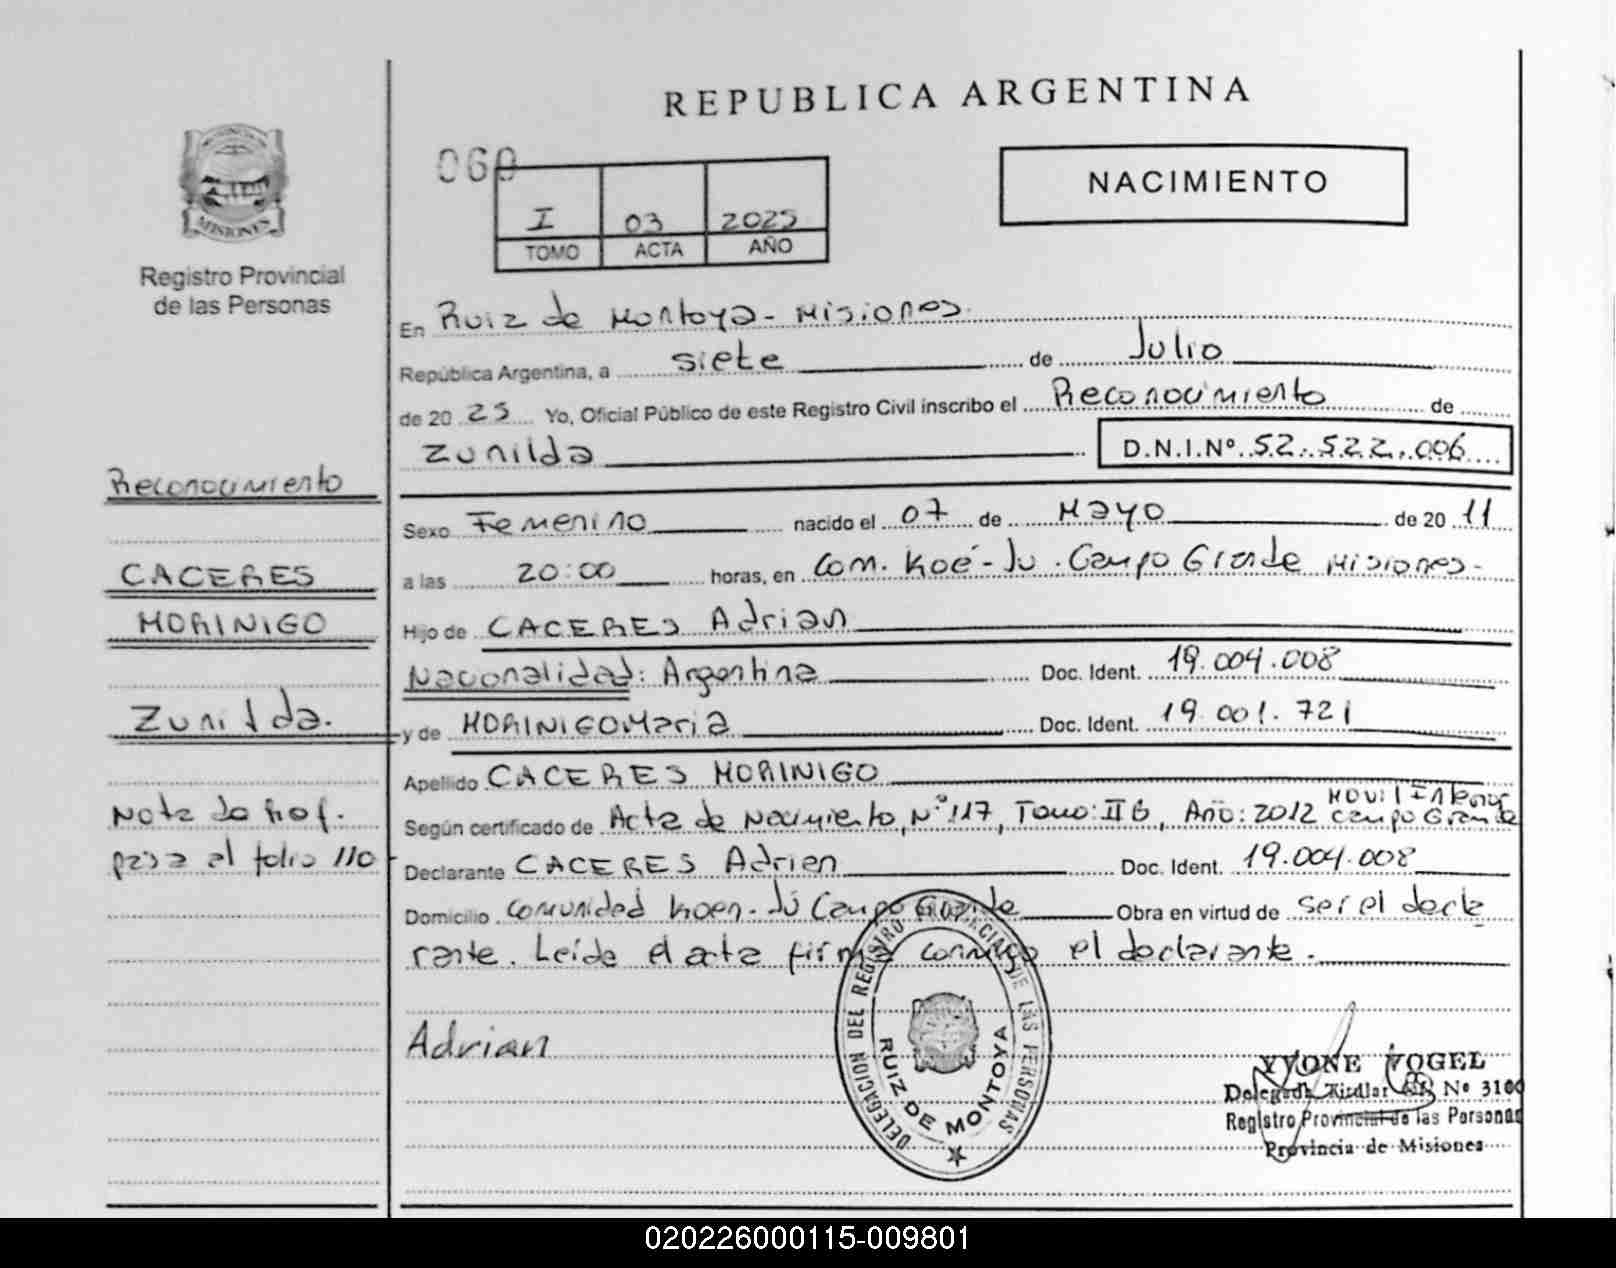 REPUBLICA ARGENTINA
PROVINCIA DE
MISIONES
Registro Provincial
de las Personas
060
I 03 2025
TOMO ACTA AÑO
NACIMIENTO
En Ruiz de Montoya - Misiones.
República Argentina, a siete de Julio
de 20 25 Yo, Oficial Público de este Registro Civil inscribo el Reconocimiento de
Zunilda D.N.I.Nº. 52.522.006
Sexo Femenino nacido el 07 de Mayo de 20 11
a las 20:00 horas, en Com. Koé-Ju. Campo Grande Misiones-
Hijo de CACERES Adrian
Nacionalidad: Argentina Doc. Ident. 19.004.008
y de MORINIGO Maria Doc. Ident. 19.001.721
Apellido CACERES MORINIGO
Según certificado de Acta de Nacimiento, Nº 117, Tomo: II B, Año: 2012 Campo Grande
Declarante CACERES Adrian Doc. Ident. 19.004.008
Domicilio Comunidad Koen-Jú Campo Grande Obra en virtud de ser el decla
rante. Leída el acta firma conmigo el declarante.
Reconocimiento
CACERES
MORINIGO
Zunilda.
Nota de Ref.
pasa al folio 110
Adrian
DELEGACION DEL REGISTRO PROVINCIAL DE LAS PERSONAS
RUIZ DE MONTOYA
YVONE VOGEL
Delegada Titular Nº 3100
Registro Provincial de las Personas
Provincia de Misiones
020226000115-009801